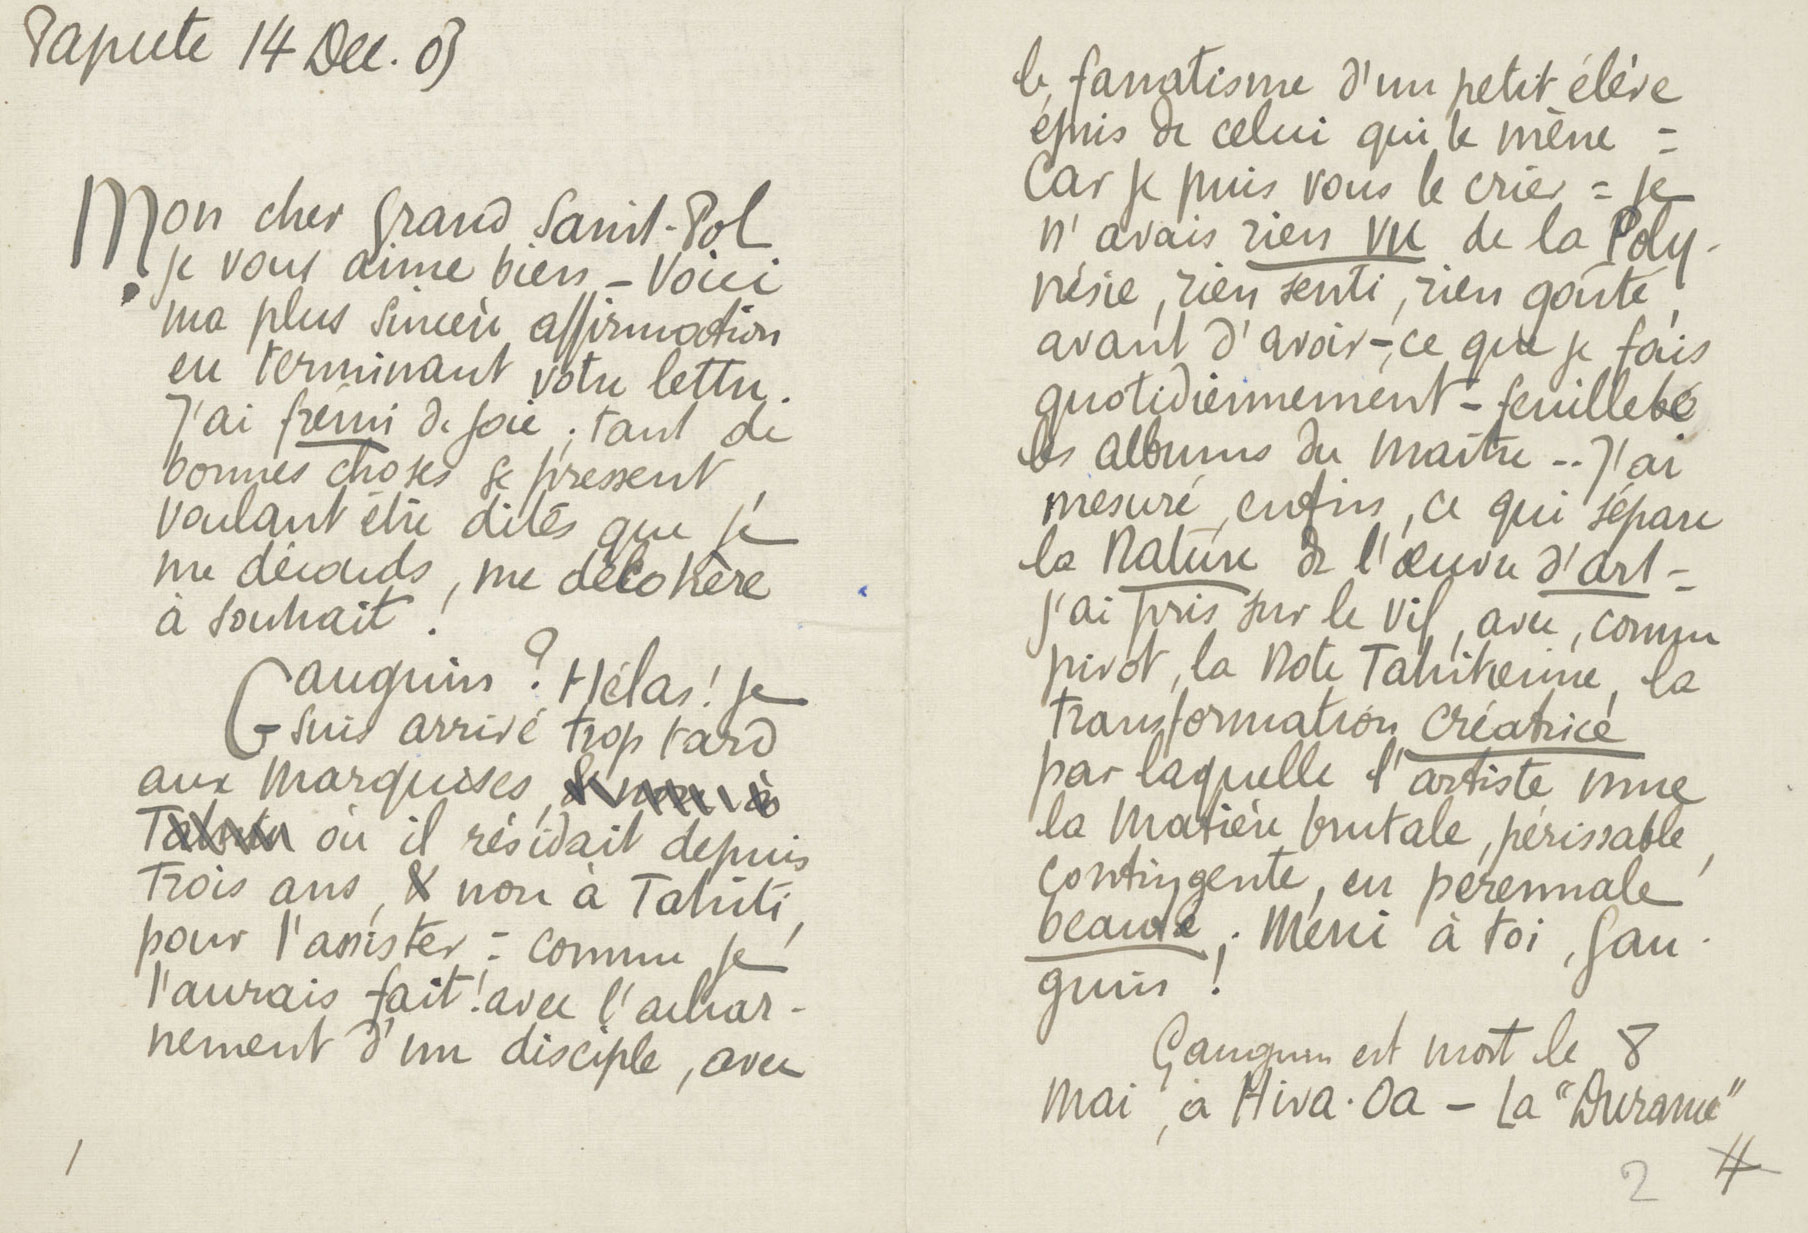 Papeete 14 Dec. 03
Mon cher grand Saint-Pol
je vous aime bien – Voici
ma plus sincère affirmation
en terminant votre lettre.
J'ai frémi de joie ; tant de
bonnes choses se pressent
voulant être dites que je
me décards, me décohère
à souhait !
Gauguin ? Hélas ! je
suis arrivé trop tard
aux Marquises, & non à
Tahiti où il résidait depuis
trois ans, & non à Tahiti,
pour l'assister = comme je
l'aurais fait ! avec l'achar-
nement d'un disciple, avec
1
le fanatisme d'un petit élève
épris de celui qui le mène =
Car je puis vous le crier = je
n'avais rien vu de la Poly-
nésie, rien senti, rien goûté,
avant d'avoir – ce que je fais
quotidiennement – feuilleté
les albums du maître -- J'ai
mesuré, enfin, ce qui sépare
la Nature de l'œuvre d'art –
j'ai pris sur le vif, avec, comme
pivot, la Note Tahitienne, la
transformation créatrice
par laquelle l'artiste mue
la matière brutale, périssable,
contingente, en perennale
beauté. Merci à toi, Gau-
guin !
Gauguin est mort le 8
mai, à Hiva-Oa – La "Durance"
2